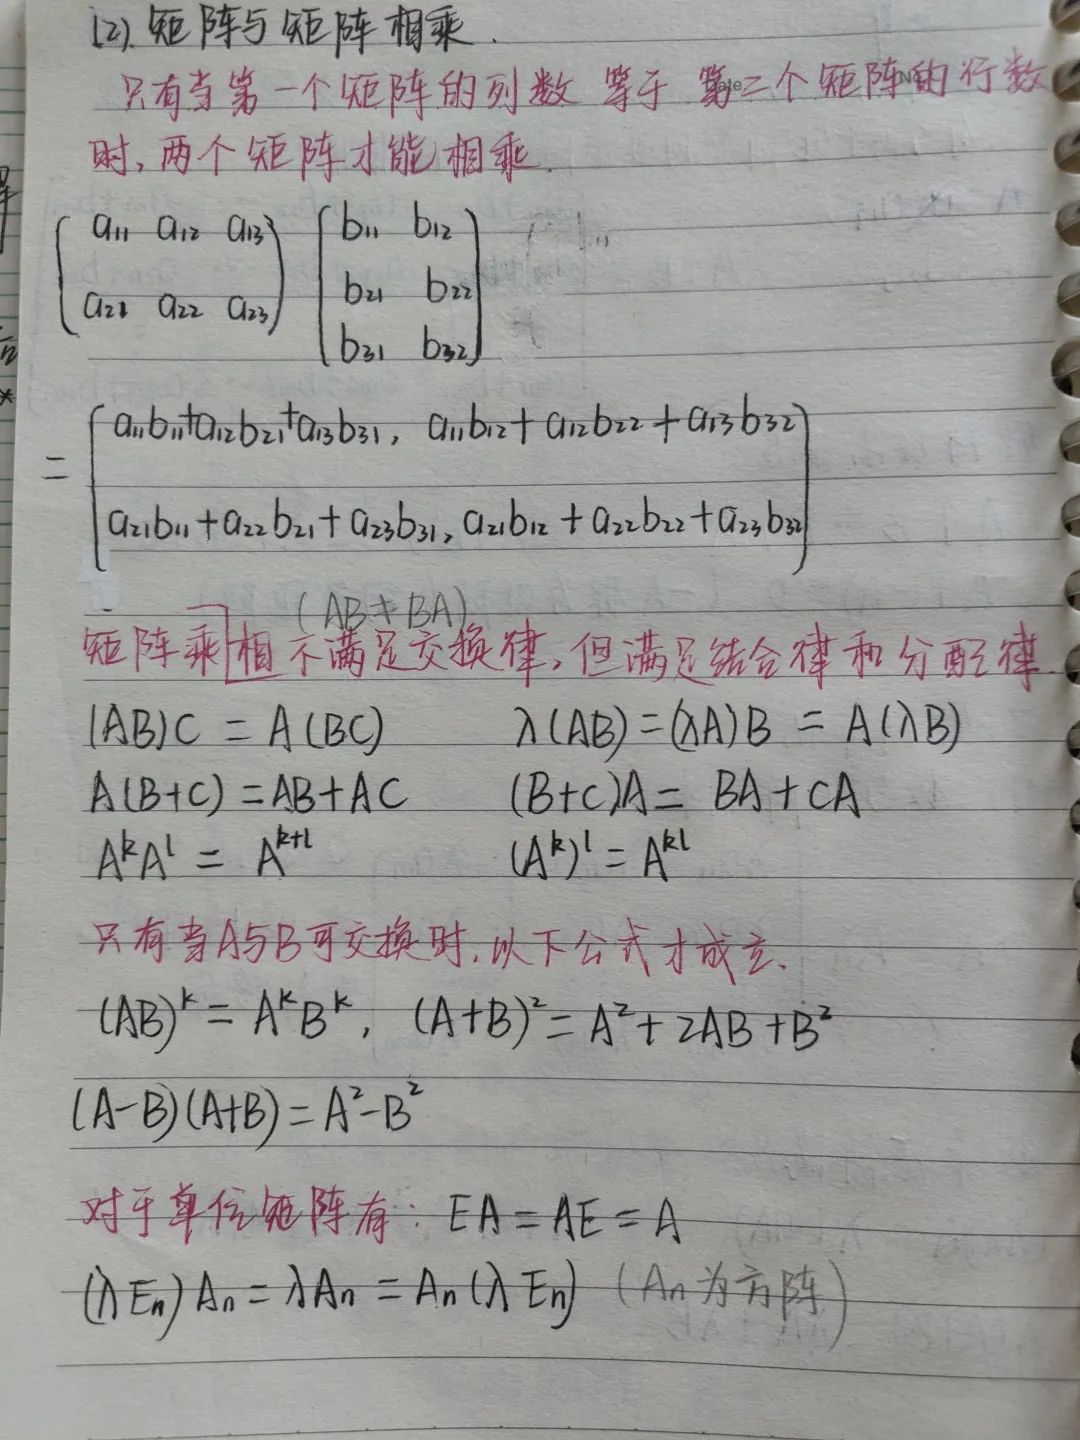 (2). 矩阵与矩阵相乘.
只有当第一个矩阵的列数等于第二个矩阵的行数
时,两个矩阵才能相乘.
a₁₁ a₁₂ a₁₃ b₁₁ b₁₂
a₂₁ a₂₂ a₂₃ b₂₁ b₂₂
b₃₁ b₃₂
= a₁₁b₁₁+a₁₂b₂₁+a₁₃b₃₁, a₁₁b₁₂+a₁₂b₂₂+a₁₃b₃₂
a₂₁b₁₁+a₂₂b₂₁+a₂₃b₃₁, a₂₁b₁₂+a₂₂b₂₂+a₂₃b₃₂
(AB≠BA)
矩阵乘相不满足交换律,但满足结合律和分配律.
(AB)C = A(BC) λ(AB)=(λA)B = A(λB)
A(B+C)=AB+AC (B+C)A = BA+CA
AᵏAˡ = Aᵏ⁺ˡ (Aᵏ)ˡ = Aᵏˡ
只有当A与B可交换时,以下公式才成立.
(AB)ᵏ = AᵏBᵏ, (A+B)²=A²+2AB+B²
(A-B)(A+B)=A²-B²
对于单位矩阵有: EA=AE=A
(λEₙ)Aₙ=λAₙ=Aₙ(λEₙ) (Aₙ为方阵)